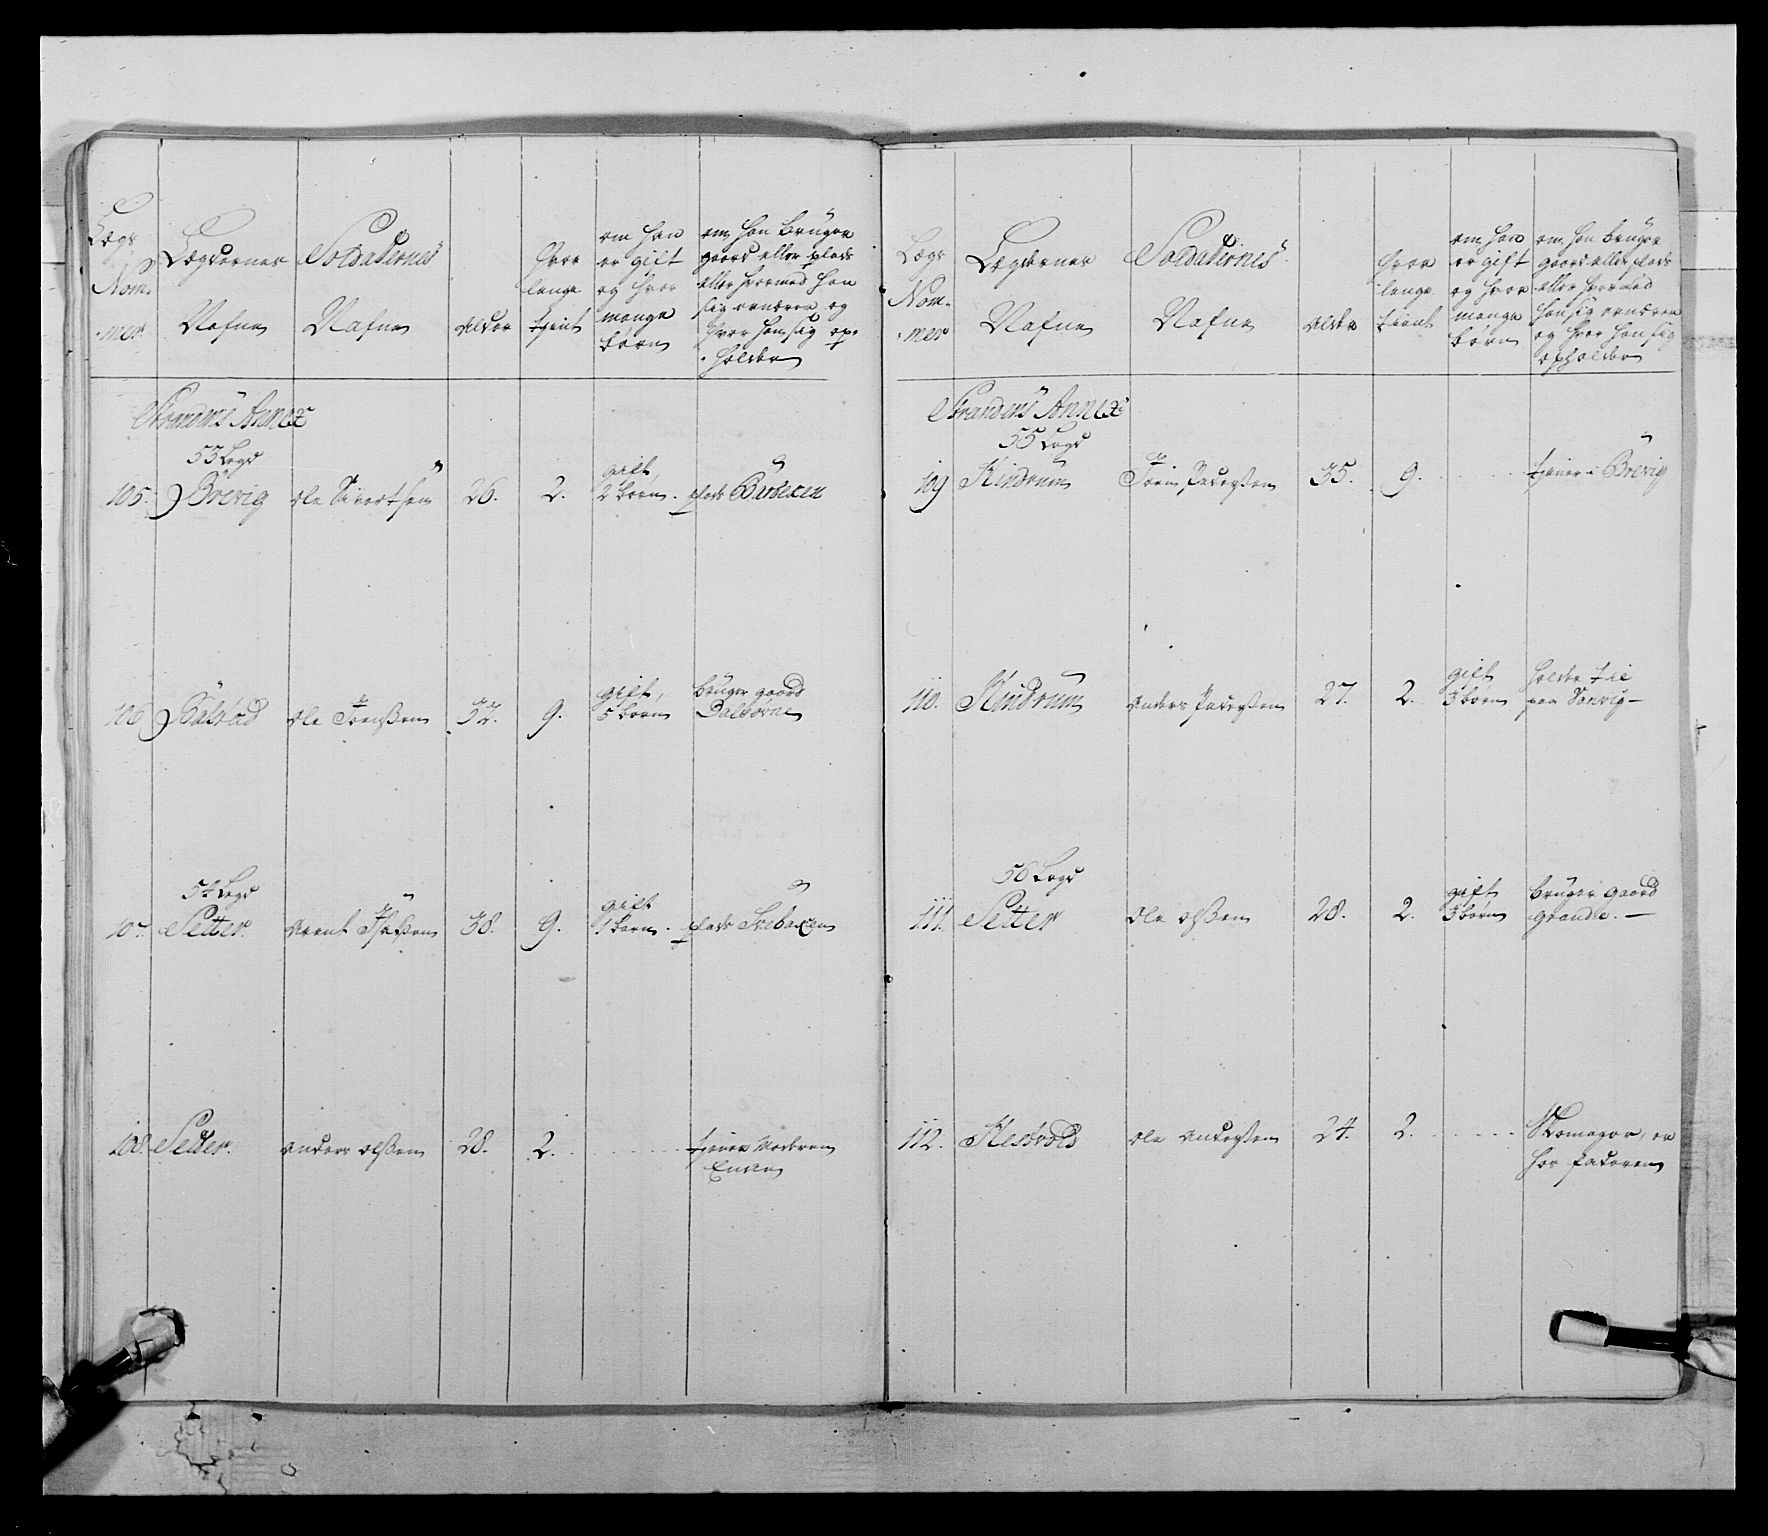 Lægs Nom- mer
Lægdernes Nafne
Soldaternes Nafne
Alder
hvor længe tient
om han er gift og hvor mange børn
om han brüger gaard eller plads eller hvormed han sig ernærer og hvor han sig op- holder
Strandens Annex
53 Legd
105. Brevig Ole Sivertsen 26. 2. gift, 2 børn. plads
106 Ole 32. 9. gift, 5 børn brüger gaard
54 Legd
107 Setter. Arent 38. 9. gift 1 barn. plads
108. Setter. Anders Olßen 28. 2. tiener
Lægs Nom- mer
Lægdernes Nafne
Soldaternes Nafne
Alder
hvor længe tient
om han er gift og hvor mange børn
om han brüger gaard eller plads eller hvormed han sig ernærer og hvor han sig opholder
Strandens Annex
55 Legd
109 Kindrum Pederßen 35. 9. tiener i Brevig
110. Kindrum Anders Pederßen 27. 2. gift 3 børn holder til paa
56 Legd
111. Setter Ole Olßen 28. 2. gift 3 børn brüger gaard Grande.
112. Ole Anderßen 24. 2. Skomager, er hos faderen